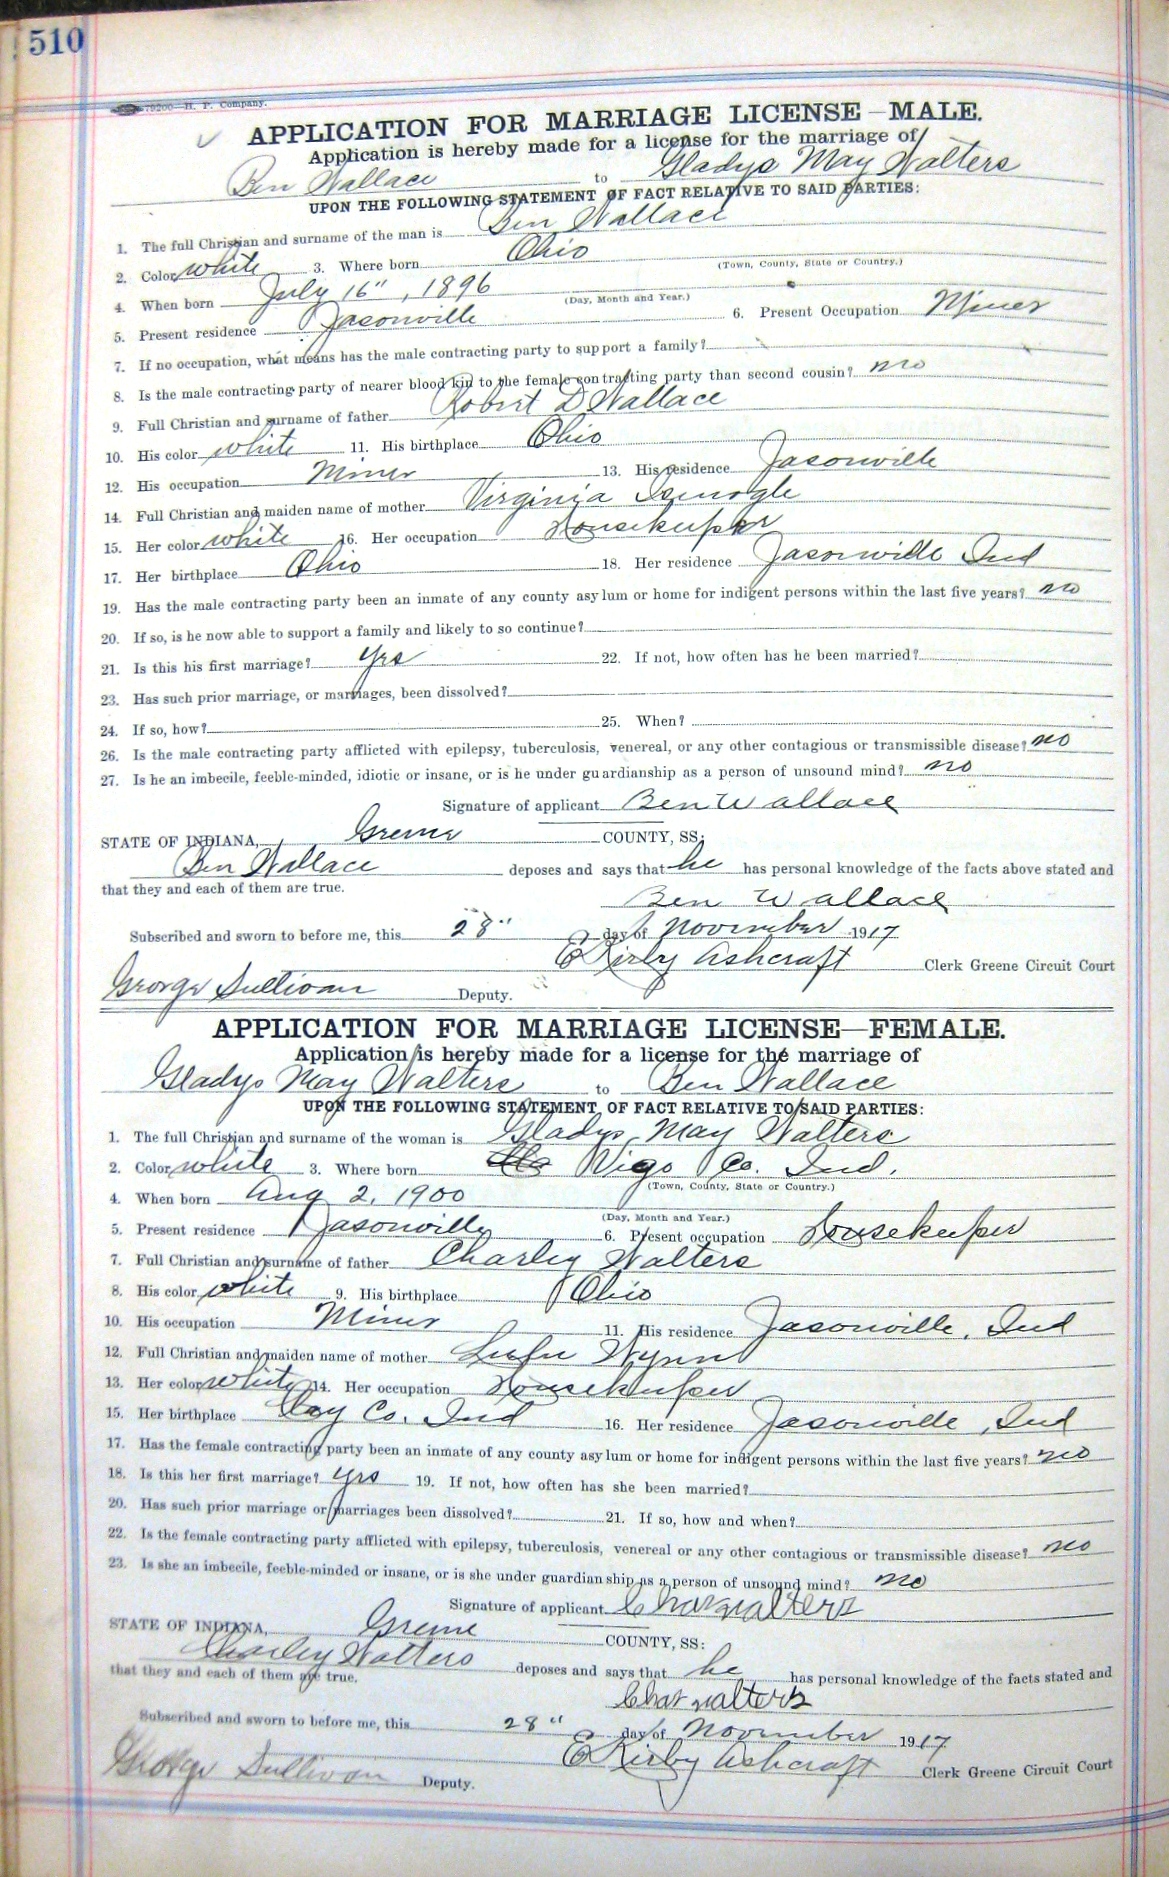 510
79200—H. P. Company.
APPLICATION FOR MARRIAGE LICENSE—MALE.
Application is hereby made for a license for the marriage of
Ben Wallace to Gladys May Walters
UPON THE FOLLOWING STATEMENT OF FACT RELATIVE TO SAID PARTIES:
1. The full Christian and surname of the man is Ben Wallace
2. Color white 3. Where born Ohio
(Town, County, State or Country.)
4. When born July 16", 1896
(Day, Month and Year.)
5. Present residence Jasonville 6. Present Occupation Miner
7. If no occupation, what means has the male contracting party to support a family?
8. Is the male contracting party of nearer blood kin to the female contracting party than second cousin? no
9. Full Christian and surname of father Robert D Wallace
10. His color white 11. His birthplace Ohio
12. His occupation Miner 13. His residence Jasonville
14. Full Christian and maiden name of mother Virginia
15. Her color white 16. Her occupation Housekeeper
17. Her birthplace Ohio 18. Her residence Jasonville Ind
19. Has the male contracting party been an inmate of any county asylum or home for indigent persons within the last five years? no
20. If so, is he now able to support a family and likely to so continue?
21. Is this his first marriage? yes 22. If not, how often has he been married?
23. Has such prior marriage, or marriages, been dissolved?
24. If so, how? 25. When?
26. Is the male contracting party afflicted with epilepsy, tuberculosis, venereal, or any other contagious or transmissible disease? no
27. Is he an imbecile, feeble-minded, idiotic or insane, or is he under guardianship as a person of unsound mind? no
Signature of applicant Ben Wallace
STATE OF INDIANA, Greene COUNTY, SS:
Ben Wallace deposes and says that he has personal knowledge of the facts above stated and
that they and each of them are true.
Ben Wallace
Subscribed and sworn to before me, this 28" day of November 1917
E Kirby Ashcraft Clerk Greene Circuit Court
George Sullivan Deputy.
APPLICATION FOR MARRIAGE LICENSE—FEMALE.
Application is hereby made for a license for the marriage of
Gladys May Walters to Ben Wallace
UPON THE FOLLOWING STATEMENT OF FACT RELATIVE TO SAID PARTIES:
1. The full Christian and surname of the woman is Gladys May Walters
2. Color white 3. Where born Vigo Co. Ind.
(Town, County, State or Country.)
4. When born Aug 2, 1900
(Day, Month and Year.)
5. Present residence Jasonville 6. Present occupation Housekeeper
7. Full Christian and surname of father Charley Walters
8. His color white 9. His birthplace Ohio
10. His occupation Miner 11. His residence Jasonville, Ind
12. Full Christian and maiden name of mother Lulu Wynn
13. Her color white 14. Her occupation Housekeeper
15. Her birthplace Clay Co. Ind 16. Her residence Jasonville, Ind
17. Has the female contracting party been an inmate of any county asylum or home for indigent persons within the last five years? no
18. Is this her first marriage? yes 19. If not, how often has she been married?
20. Has such prior marriage or marriages been dissolved? 21. If so, how and when?
22. Is the female contracting party afflicted with epilepsy, tuberculosis, venereal or any other contagious or transmissible disease? no
23. Is she an imbecile, feeble-minded or insane, or is she under guardianship as a person of unsound mind? no
Signature of applicant Chas walters
STATE OF INDIANA, Greene COUNTY, SS:
Charley Walters deposes and says that he has personal knowledge of the facts stated and
that they and each of them are true.
Chas walters
Subscribed and sworn to before me, this 28" day of November 1917
E Kirby Ashcraft Clerk Greene Circuit Court
George Sullivan Deputy.